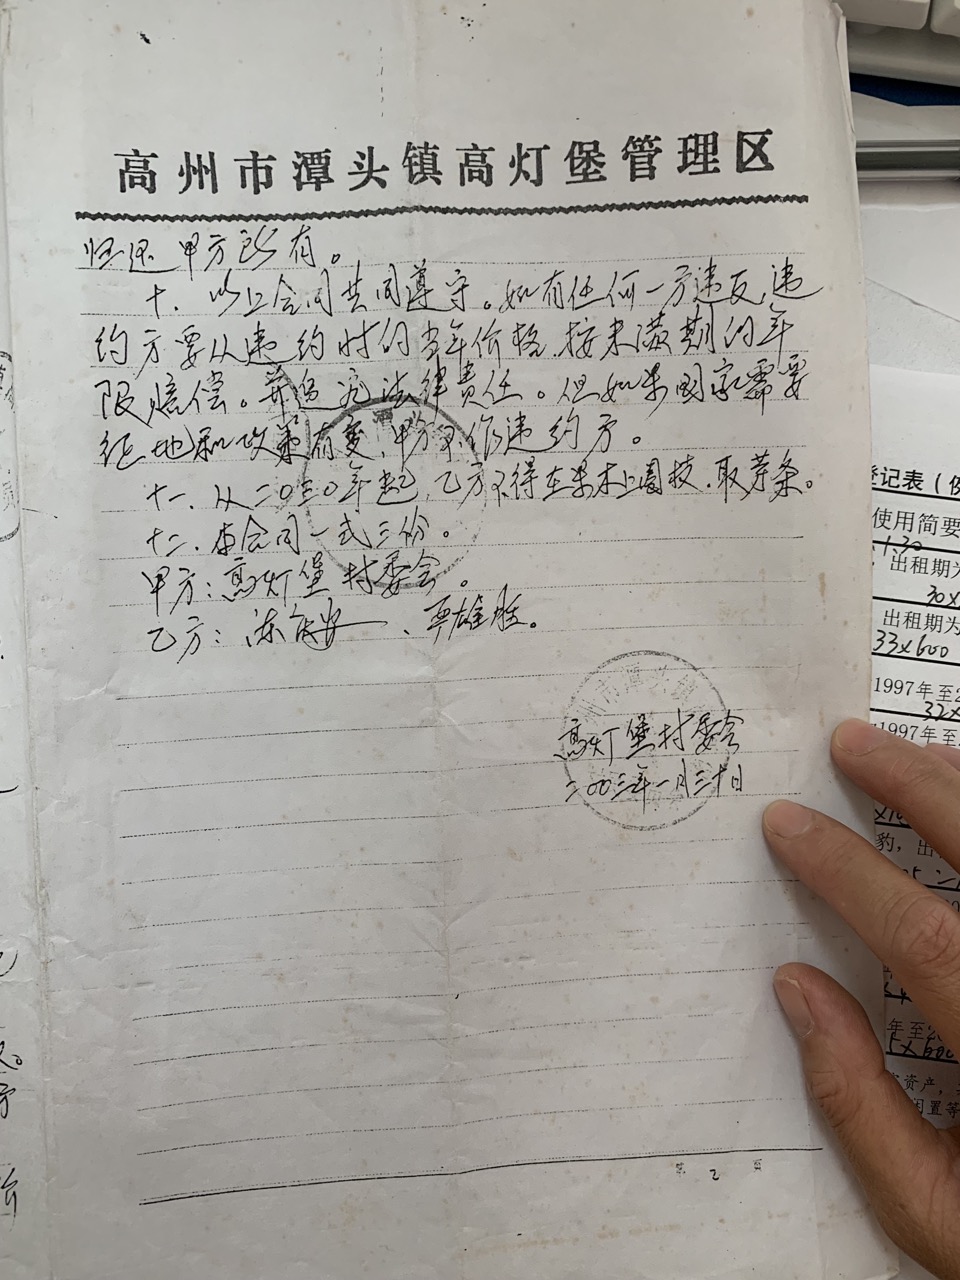 高州市潭头镇高灯堡管理区
归还甲方所有。
十、以上合同共同遵守。如有任何一方违反，违
约方要从违约时的当年价格，按未满期的年
限赔偿。并追究法律责任。但如果国家需要
征地和政策有变，甲方不作违约方。
十一、从二0三0年起，乙方不得在果木上圈枝、取芽条。
十二、本合同一式三份。
甲方：高灯堡村委会。
乙方：陈 、覃雄胜。
高灯堡村委会
二00三年一月三十日
第 2 页
登记表（
使用简要
1.30
出租期为
30×
出租期为
33×600
1997年至2
32×
1997年至
豹，出
年至20
5×600
资产，
闲置等